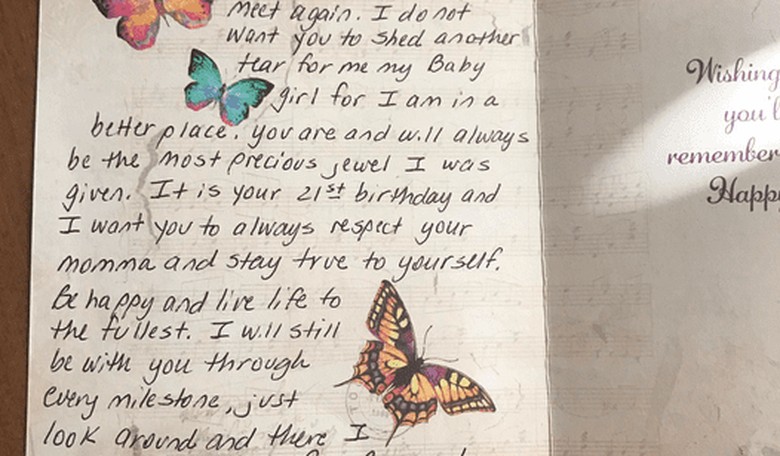 meet again. I do not
want you to shed another
tear for me my Baby
girl for I am in a
better place. you are and will always
be the most precious jewel I was
given. It is your 21st birthday and
I want you to always respect your
momma and stay true to yourself.
Be happy and live life to
the fullest. I will still
be with you through
every milestone, just
look around and there I
Wishing
you'l
remember
Happ